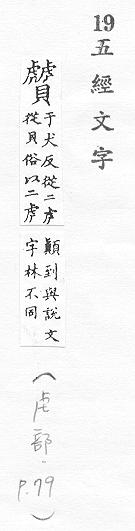 19 五經文字
贙
于犬反從二虎
從貝俗以二虎
顚到與說文
字林不同
(虍部. p.79)